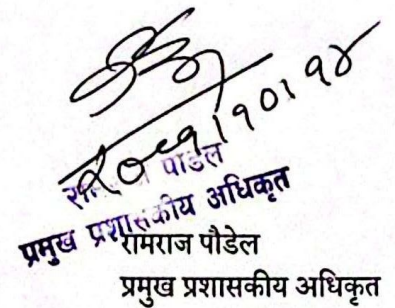 २०८१।१०।१४
पौडेल
प्रमुख प्रशासकीय अधिकृत
रामराज पौडेल
प्रमुख प्रशासकीय अधिकृत